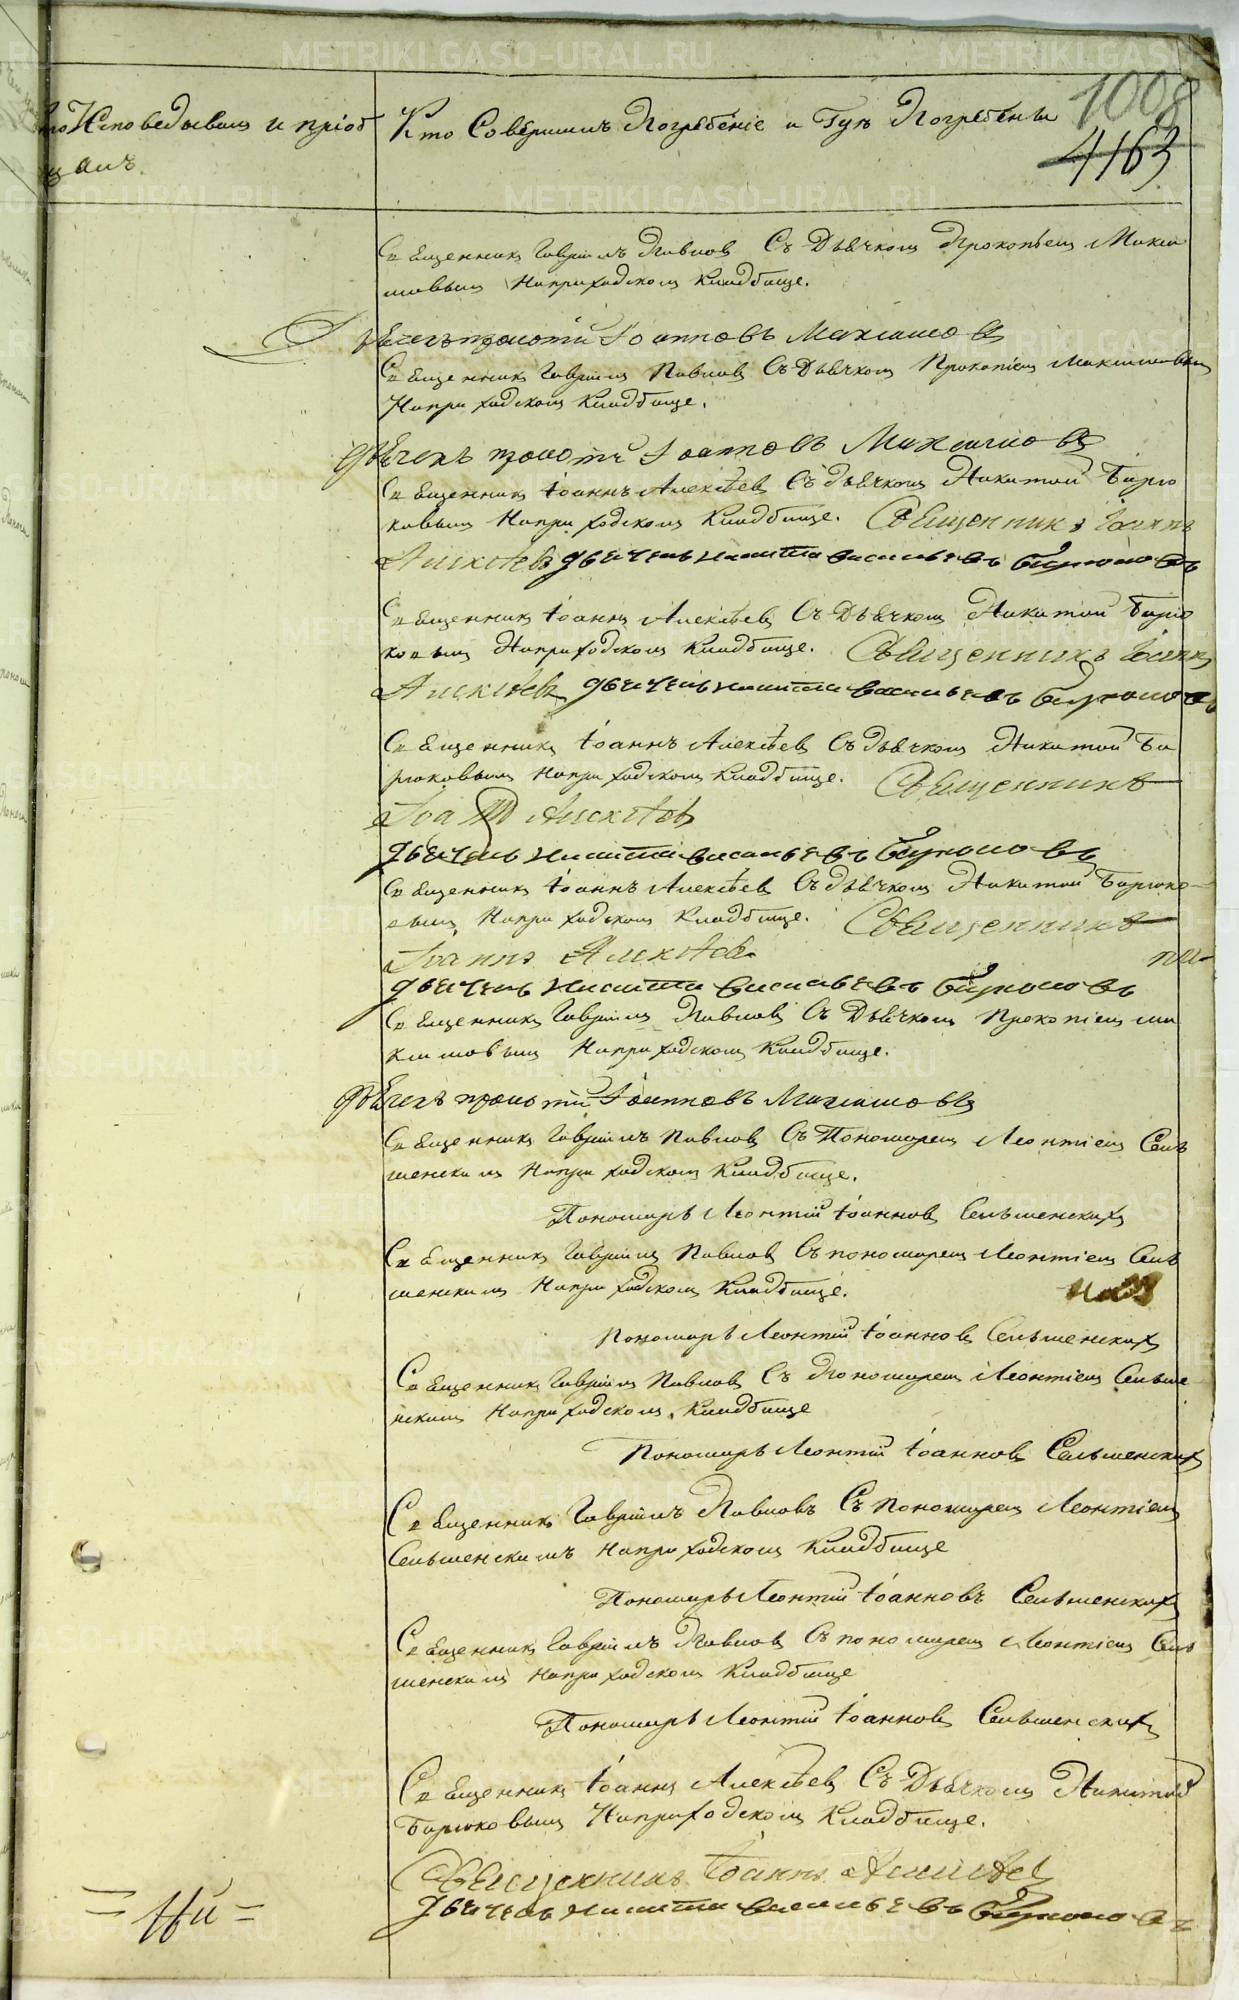 то Исповедывалъ и пріоб
щалъ.
Кто Совершилъ Погребеніе и Гдѣ Погребены
1008
4163
Священникъ Гавріилъ Павловъ Съ Дьячкомъ Прокопьемъ Макси
мовымъ Наприходскомъ Кладбище.
Дьячекъ прокопій Іоанновъ Максимовъ
Священникъ Гавріилъ Павловъ Съ Дьячкомъ Прокопіемъ Максимовымъ
Наприходскомъ Кладбище.
дьячекъ прокопій Іоанновъ Максимовъ
Священникъ Іоаннъ Алексѣевъ Съ дьячкомъ Никитой Бирю
ковымъ Наприходскомъ Кладбище. Священникъ Іоаннъ
Алексѣевъ дьячекъ никита васильевъ бирюковъ
Священникъ Іоаннъ Алексѣевъ Съ Дьячкомъ Никитой Бирю
ковымъ Наприходскомъ Кладбище. Священникъ Іоаннъ
Алексѣевъ дьячекъ никита васильевъ бирюковъ
Священникъ Іоаннъ Алексѣевъ Съ дьячкомъ Никитой Би
рюковымъ Наприходскомъ Кладбище. Священникъ
Іоаннъ Алексѣевъ
дьячекъ никита васильевъ бирюковъ
Священникъ Іоаннъ Алексѣевъ Съ дьячкомъ Никитой Бирюко
вымъ Наприходскомъ Кладбище. Священникъ
Іоаннъ Алексѣевъ
дьячекъ никита васильевъ бирюковъ
Священникъ Гавріилъ Павловъ Съ Дьячкомъ Прокопіемъ ма
ксимовымъ Наприходскомъ Кладбище.
дьячекъ прокопій Іоанновъ Максимовъ
Священникъ Гавріилъ Павловъ Съ Пономаремъ Леонтіемъ Сель
менскимъ Наприходскомъ Кладбище.
Пономарь Леонтій Іоанновъ Сельменскихъ
Священникъ Гавріилъ Павловъ Съ пономаремъ Леонтіемъ Сель
менскимъ Наприходскомъ Кладбище.
Пономарь Леонтій Іоанновъ Сельменскихъ
Священникъ Гавріилъ Павловъ Съ Пономаремъ Леонтіемъ Сельме
нскимъ Наприходскомъ Кладбище
Пономарь Леонтій Іоанновъ Сельменскихъ
Священникъ Гавріилъ Павловъ Съ пономаремъ Леонтіемъ
Сельменскимъ Наприходскомъ Кладбище
Пономарь Леонтій Іоанновъ Сельменскихъ
Священникъ Гавріилъ Павловъ Съ пономаремъ Леонтіемъ Сель
менскимъ Наприходскомъ Кладбище
Пономарь Леонтій Іоанновъ Сельменскихъ
Священникъ Іоаннъ Алексѣевъ Съ Дьячкомъ Никитой
Бирюковымъ Наприходскомъ Кладбище.
Священникъ Іоаннъ Алексѣевъ
дьячекъ никита васильевъ бирюковъ